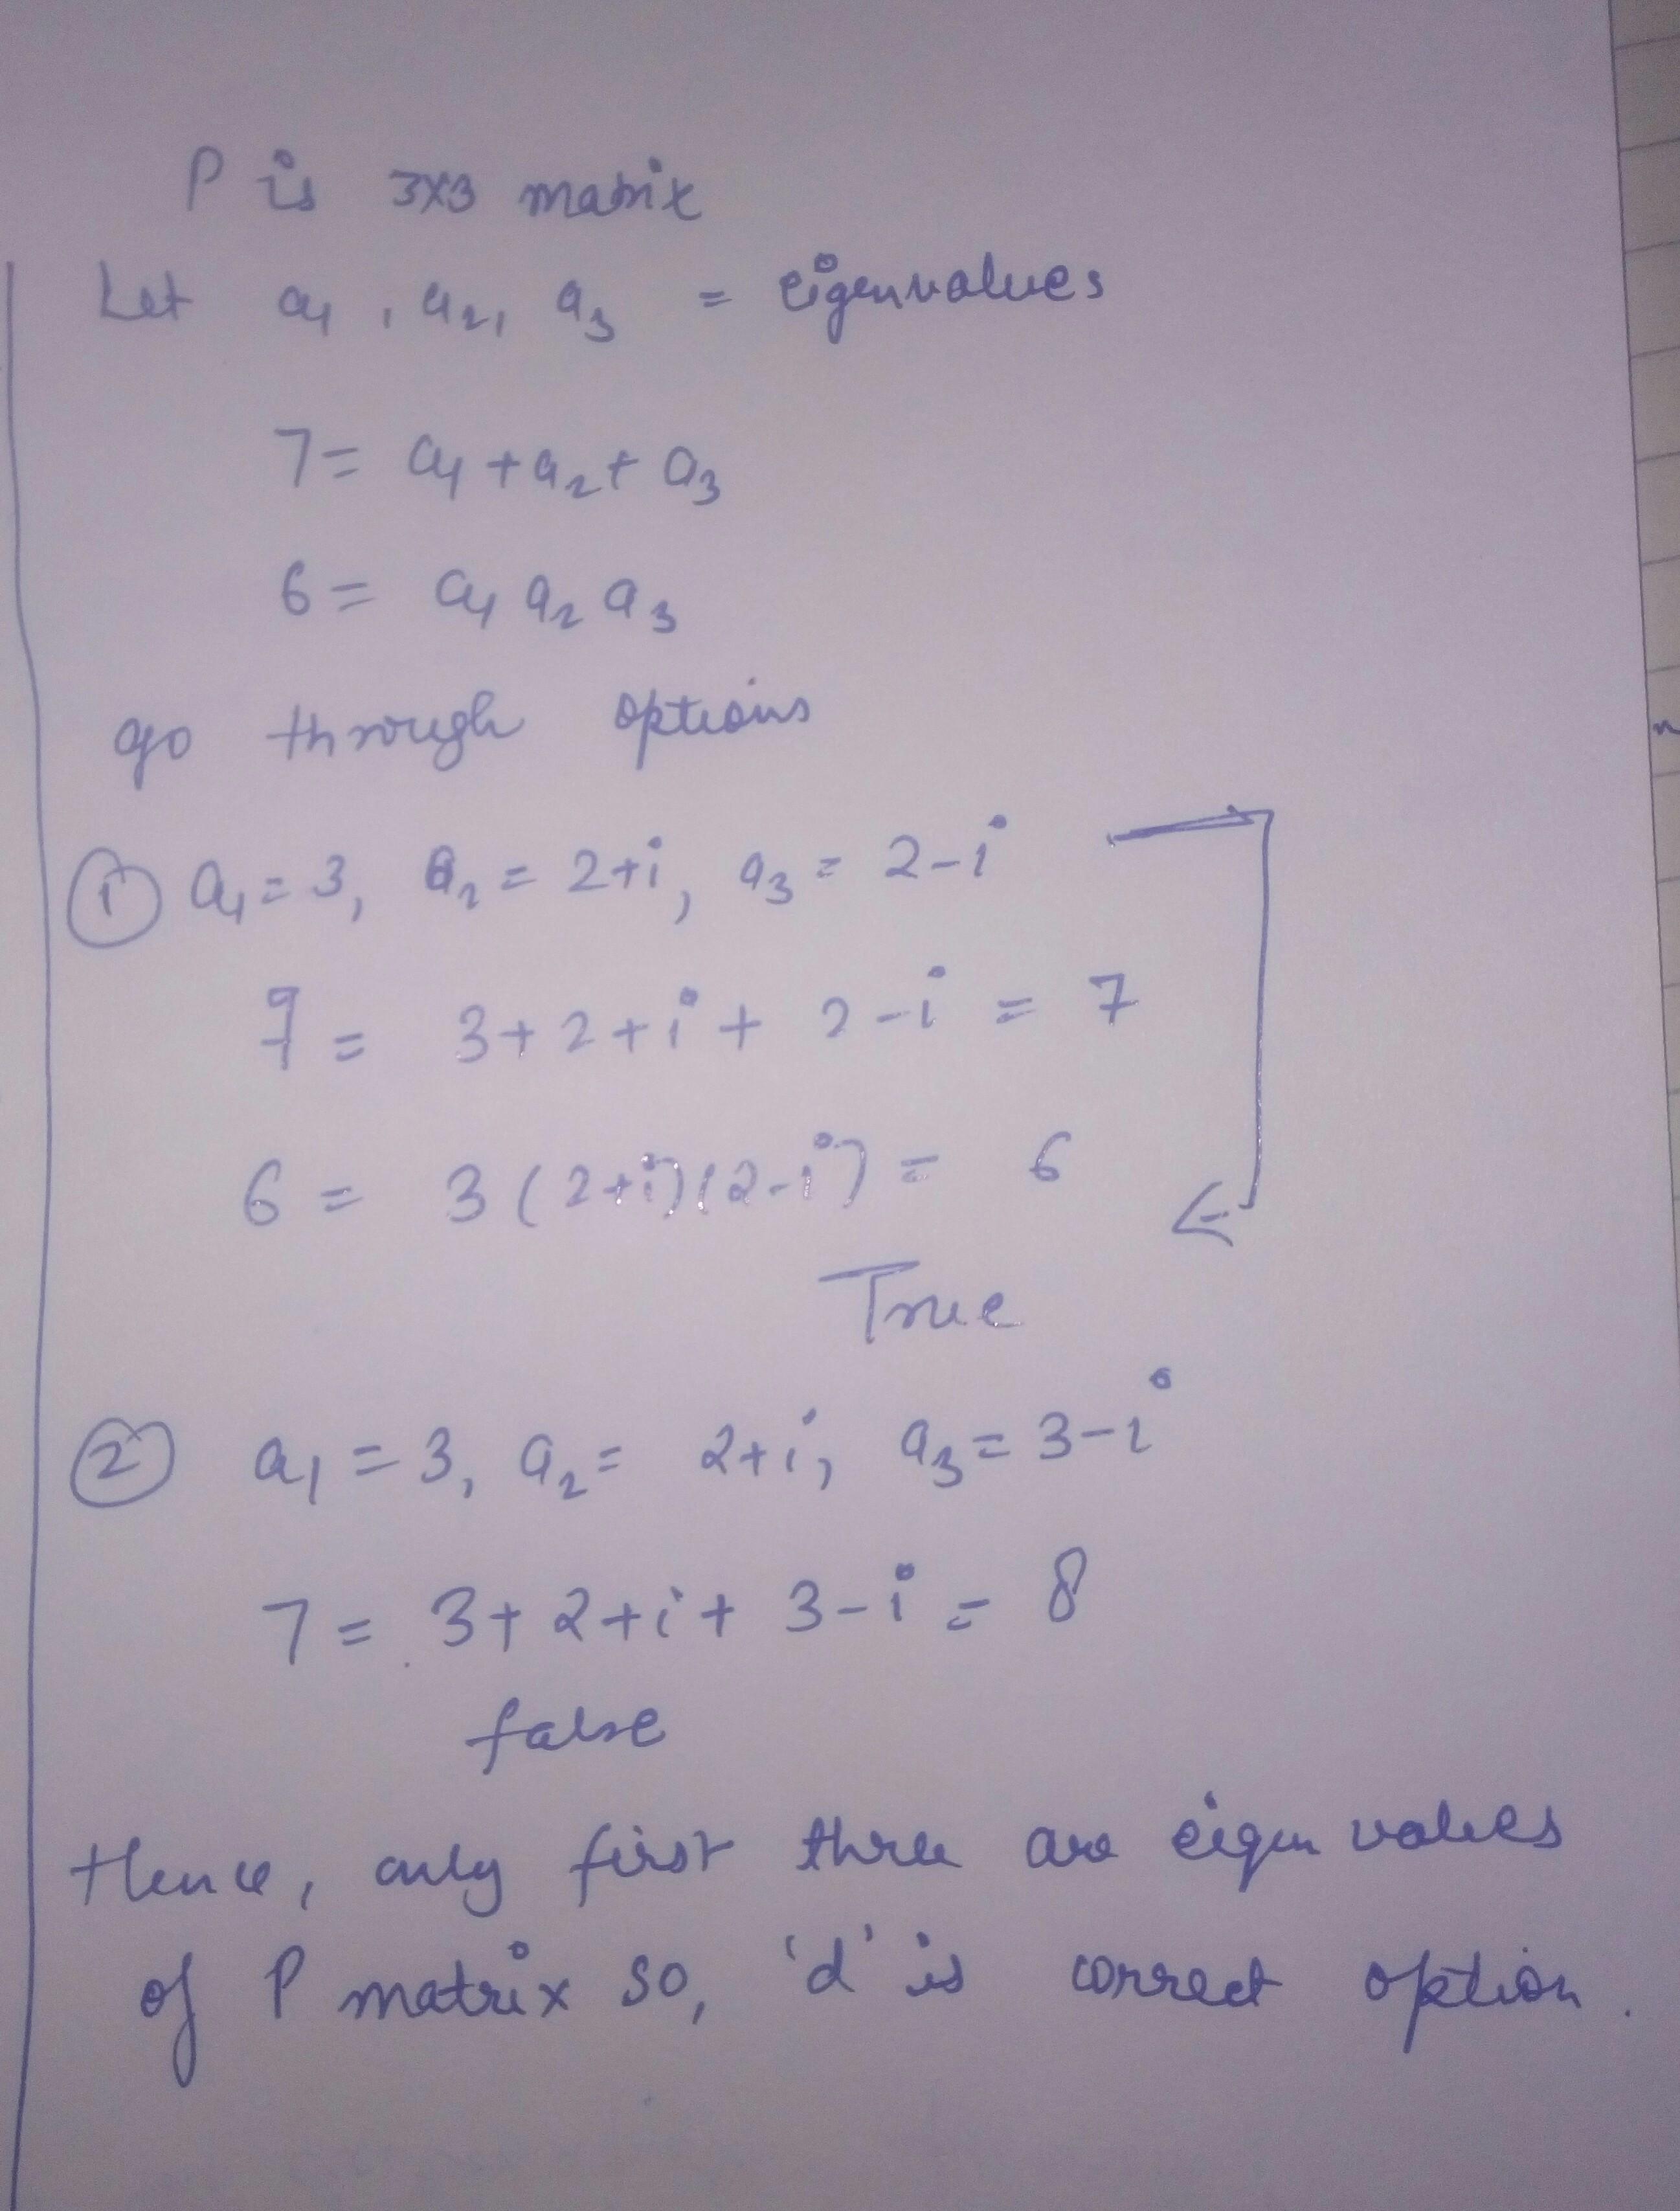 P is 3x3 matrix
Let a1, a2, a3 = eigenvalues
7 = a1 + a2 + a3
6 = a1 a2 a3
go through options
① a1 = 3, a2 = 2+i, a3 = 2-i
7 = 3+2+i+ 2-i = 7
6 = 3(2+i)(2-i) = 6
True
② a1 = 3, a2 = 2+i, a3 = 3-i
7 = 3+2+i+ 3-i = 8
false
Hence, only first three are eigen values
of P matrix so, 'd' is correct option.